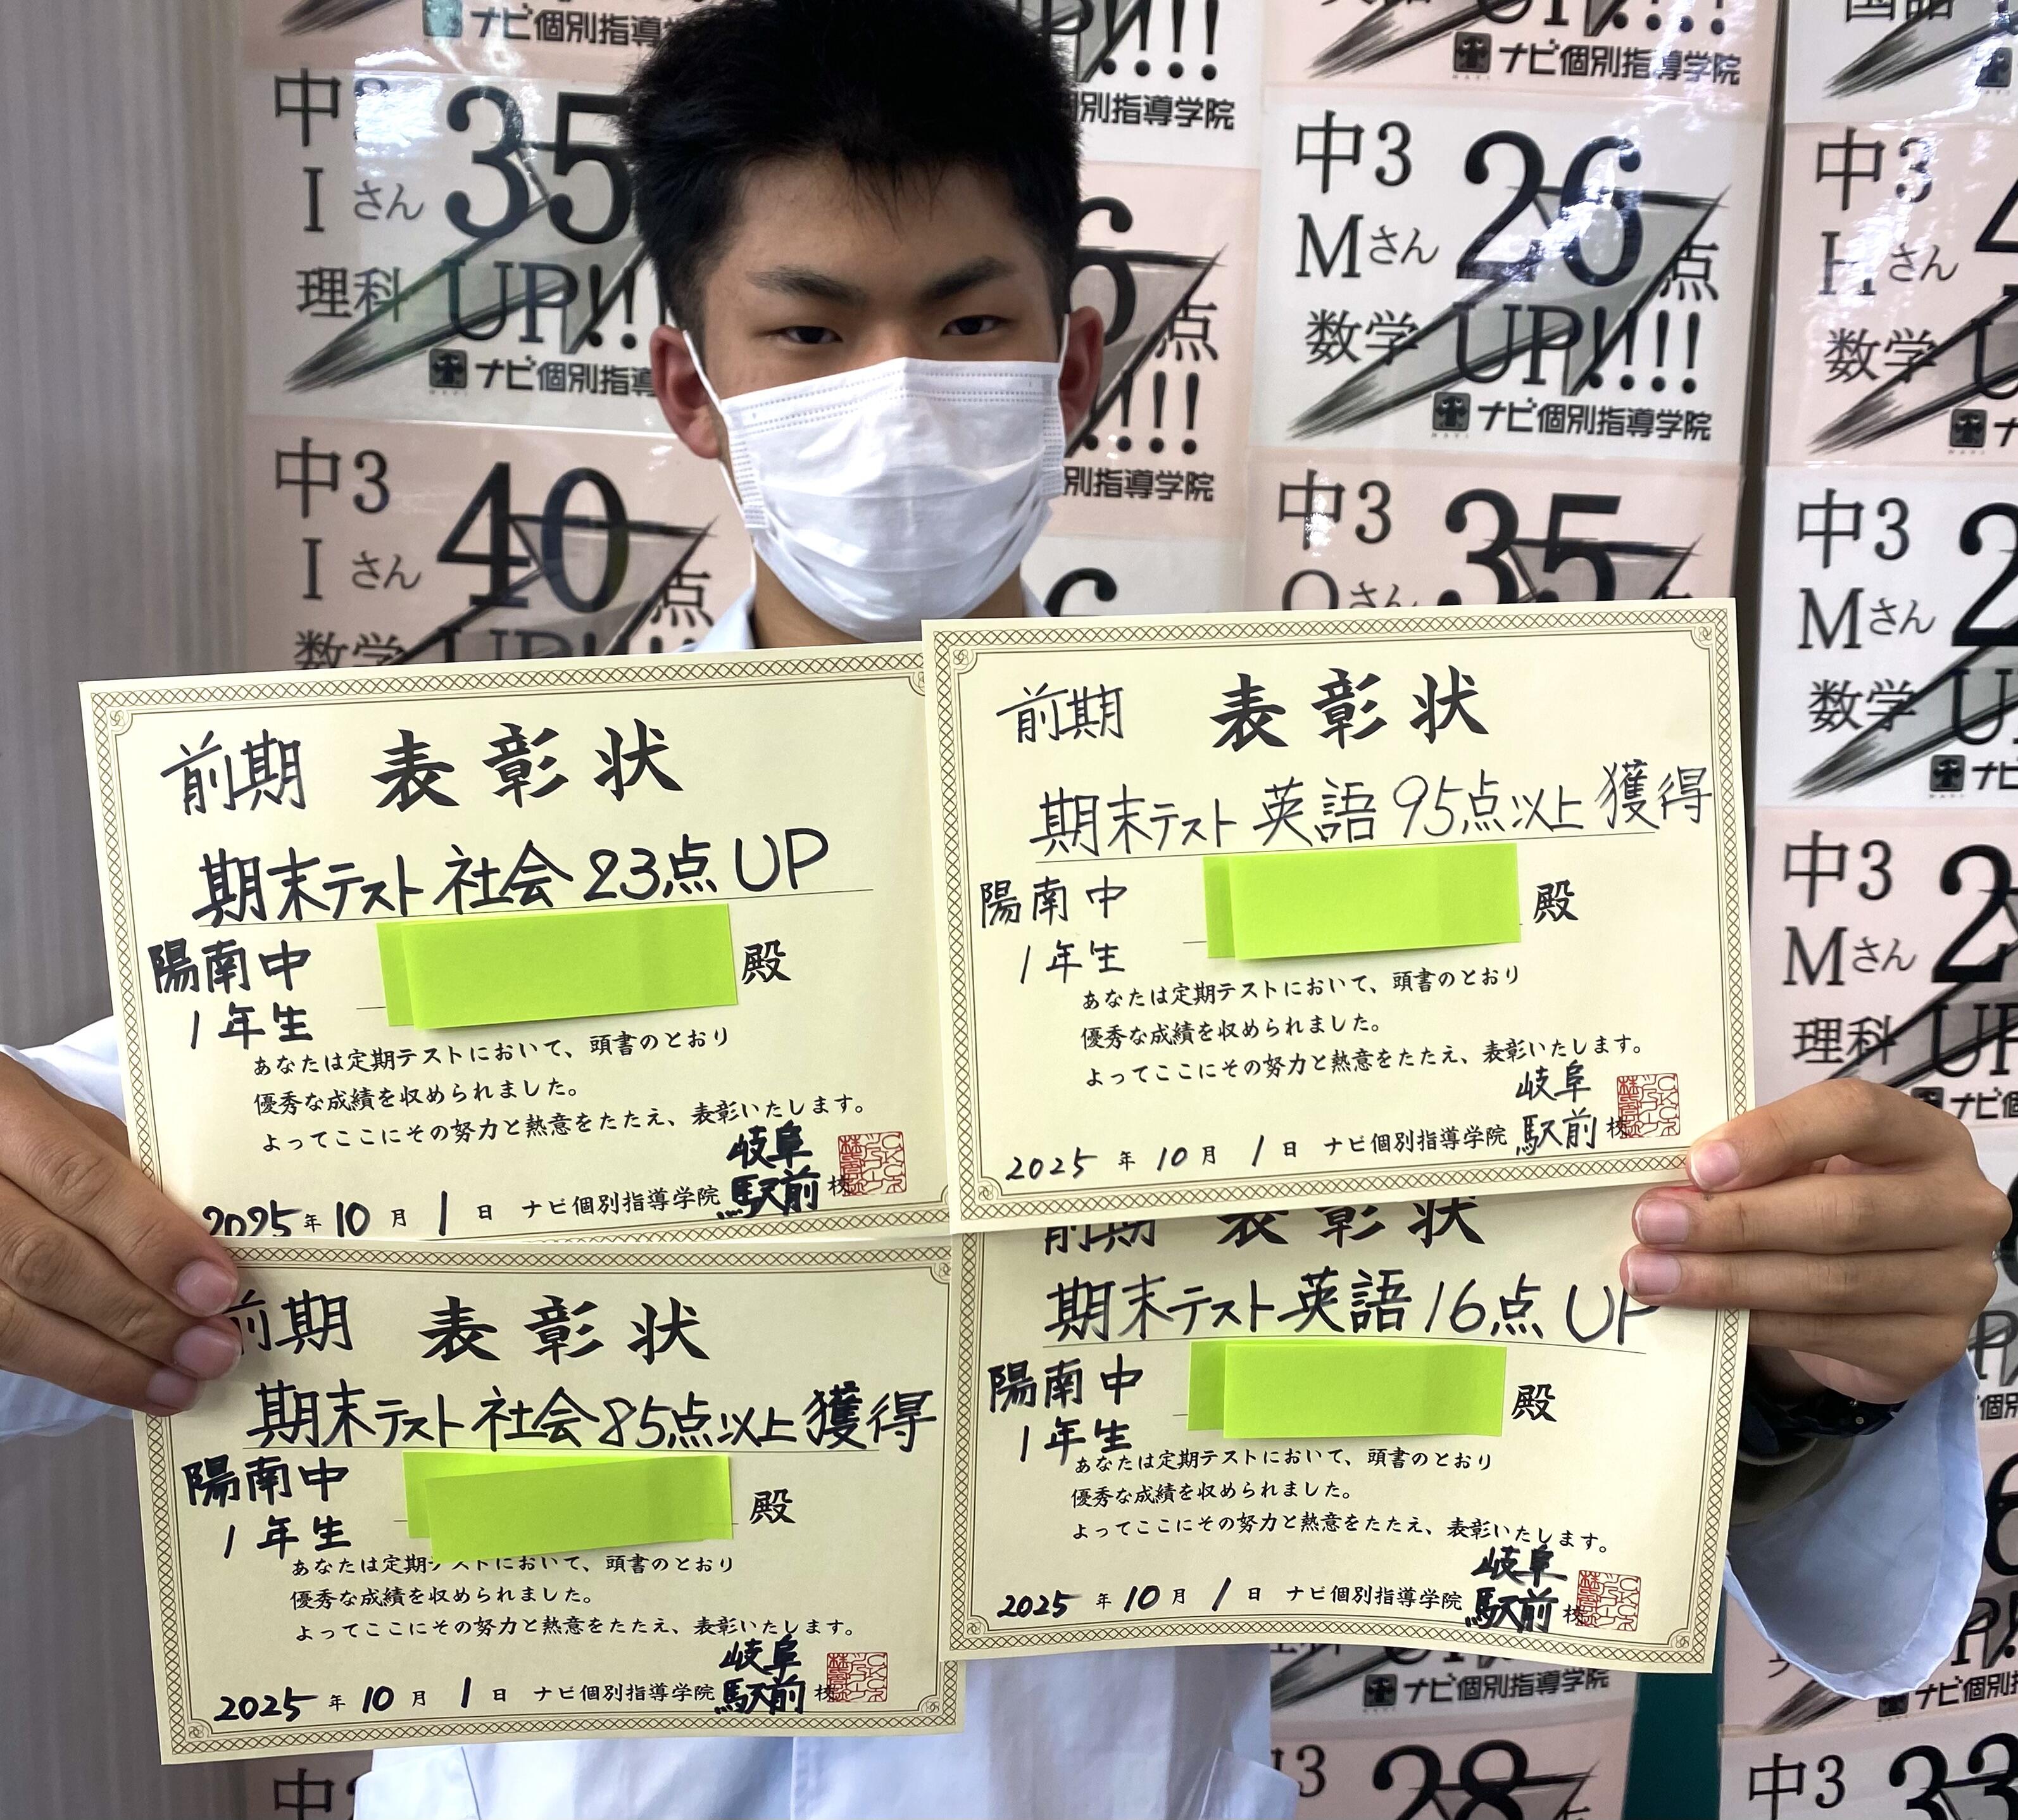 ナビ個別指導
中
35
I さん
理科
UP!!
ナビ個別指導
中3
40
I さん
点
数学
UP!!
!!!
別指導学院
6
点
!!!
別指導学院
UP!!!!
ナビ個別指導学院
中3
26
Mさん
点
数学
UP!!!!
ナビ個別指導学院
中3
35
さん
国語
中3
Hさん
数学
中3
2
Mさん
数学
中3
2
Mさん
理科
UP
前期 表彰状
期末テスト 社会 23点 UP
陽南中
1年生
殿
あなたは定期テストにおいて、頭書のとおり
優秀な成績を収められました。
よってここにその努力と熱意をたたえ、表彰いたします。
2025年 10月 1日 ナビ個別指導学院 岐阜駅前校
前期 表彰状
期末テスト 英語 95点以上獲得
陽南中
1年生
殿
あなたは定期テストにおいて、頭書のとおり
優秀な成績を収められました。
よってここにその努力と熱意をたたえ、表彰いたします。
2025年 10月 1日 ナビ個別指導学院 岐阜駅前校
前期 表彰状
期末テスト 社会 85点以上獲得
陽南中
1年生
殿
あなたは定期テストにおいて、頭書のとおり
優秀な成績を収められました。
よってここにその努力と熱意をたたえ、表彰いたします。
2025年 10月 1日 ナビ個別指導学院 岐阜駅前校
前期 表彰状
期末テスト 英語 16点 UP
陽南中
1年生
殿
あなたは定期テストにおいて、頭書のとおり
優秀な成績を収められました。
よってここにその努力と熱意をたたえ、表彰いたします。
2025年 10月 1日 ナビ個別指導学院 岐阜駅前校
ナビ個別指導学院
28
中3
33